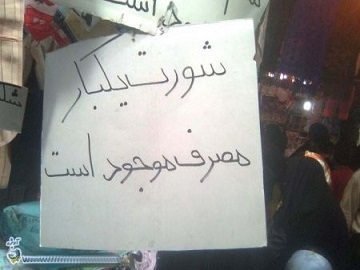 است
شورت یکبار
مصرف موجود است